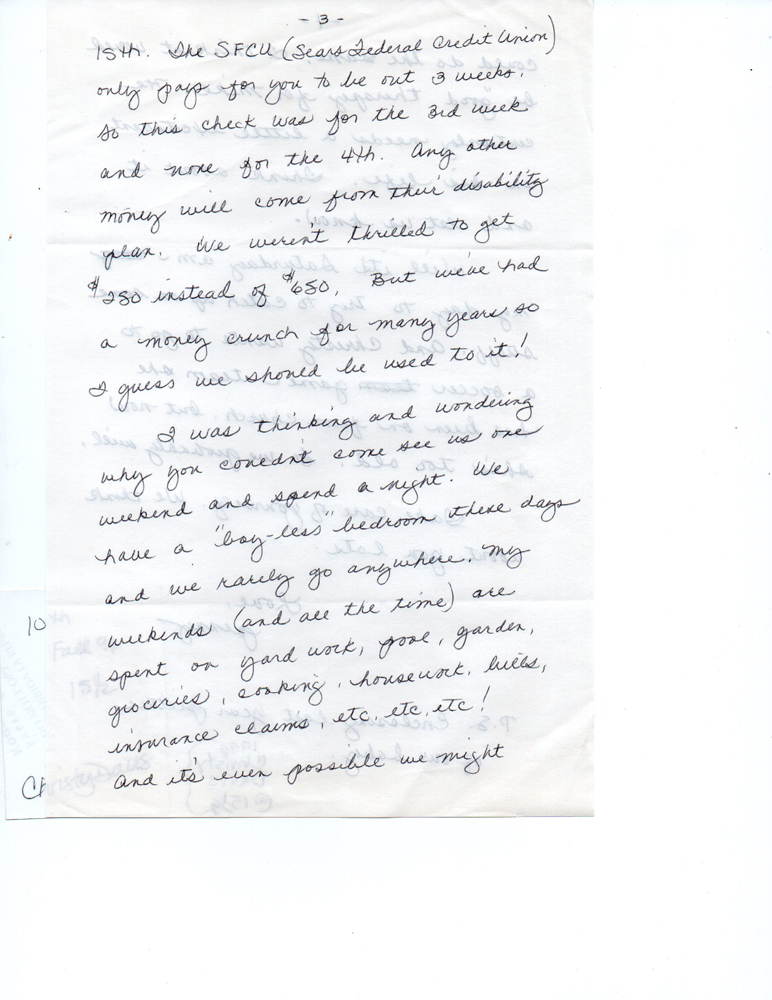 - 3 -
15th. The SFCU (Sears Federal Credit Union)
only pays for you to be out 3 weeks,
so this check was for the 3rd week
and none for the 4th. Any other
money will come from their disability
plan. We weren't thrilled to get
$250 instead of $650. But we've had
a money crunch for many years so
I guess we should be used to it!
I was thinking and wondering
why you couldn't come see us one
weekend and spend a night. We
have a "boy-less" bedroom these days
and we rarely go anywhere. My
weekends (and all the time) are
spent on yard work, pool, garden,
groceries, cooking, housework, bills,
insurance claims, etc, etc, etc!
And it's even possible we might
10th
Fall
15½
Christy